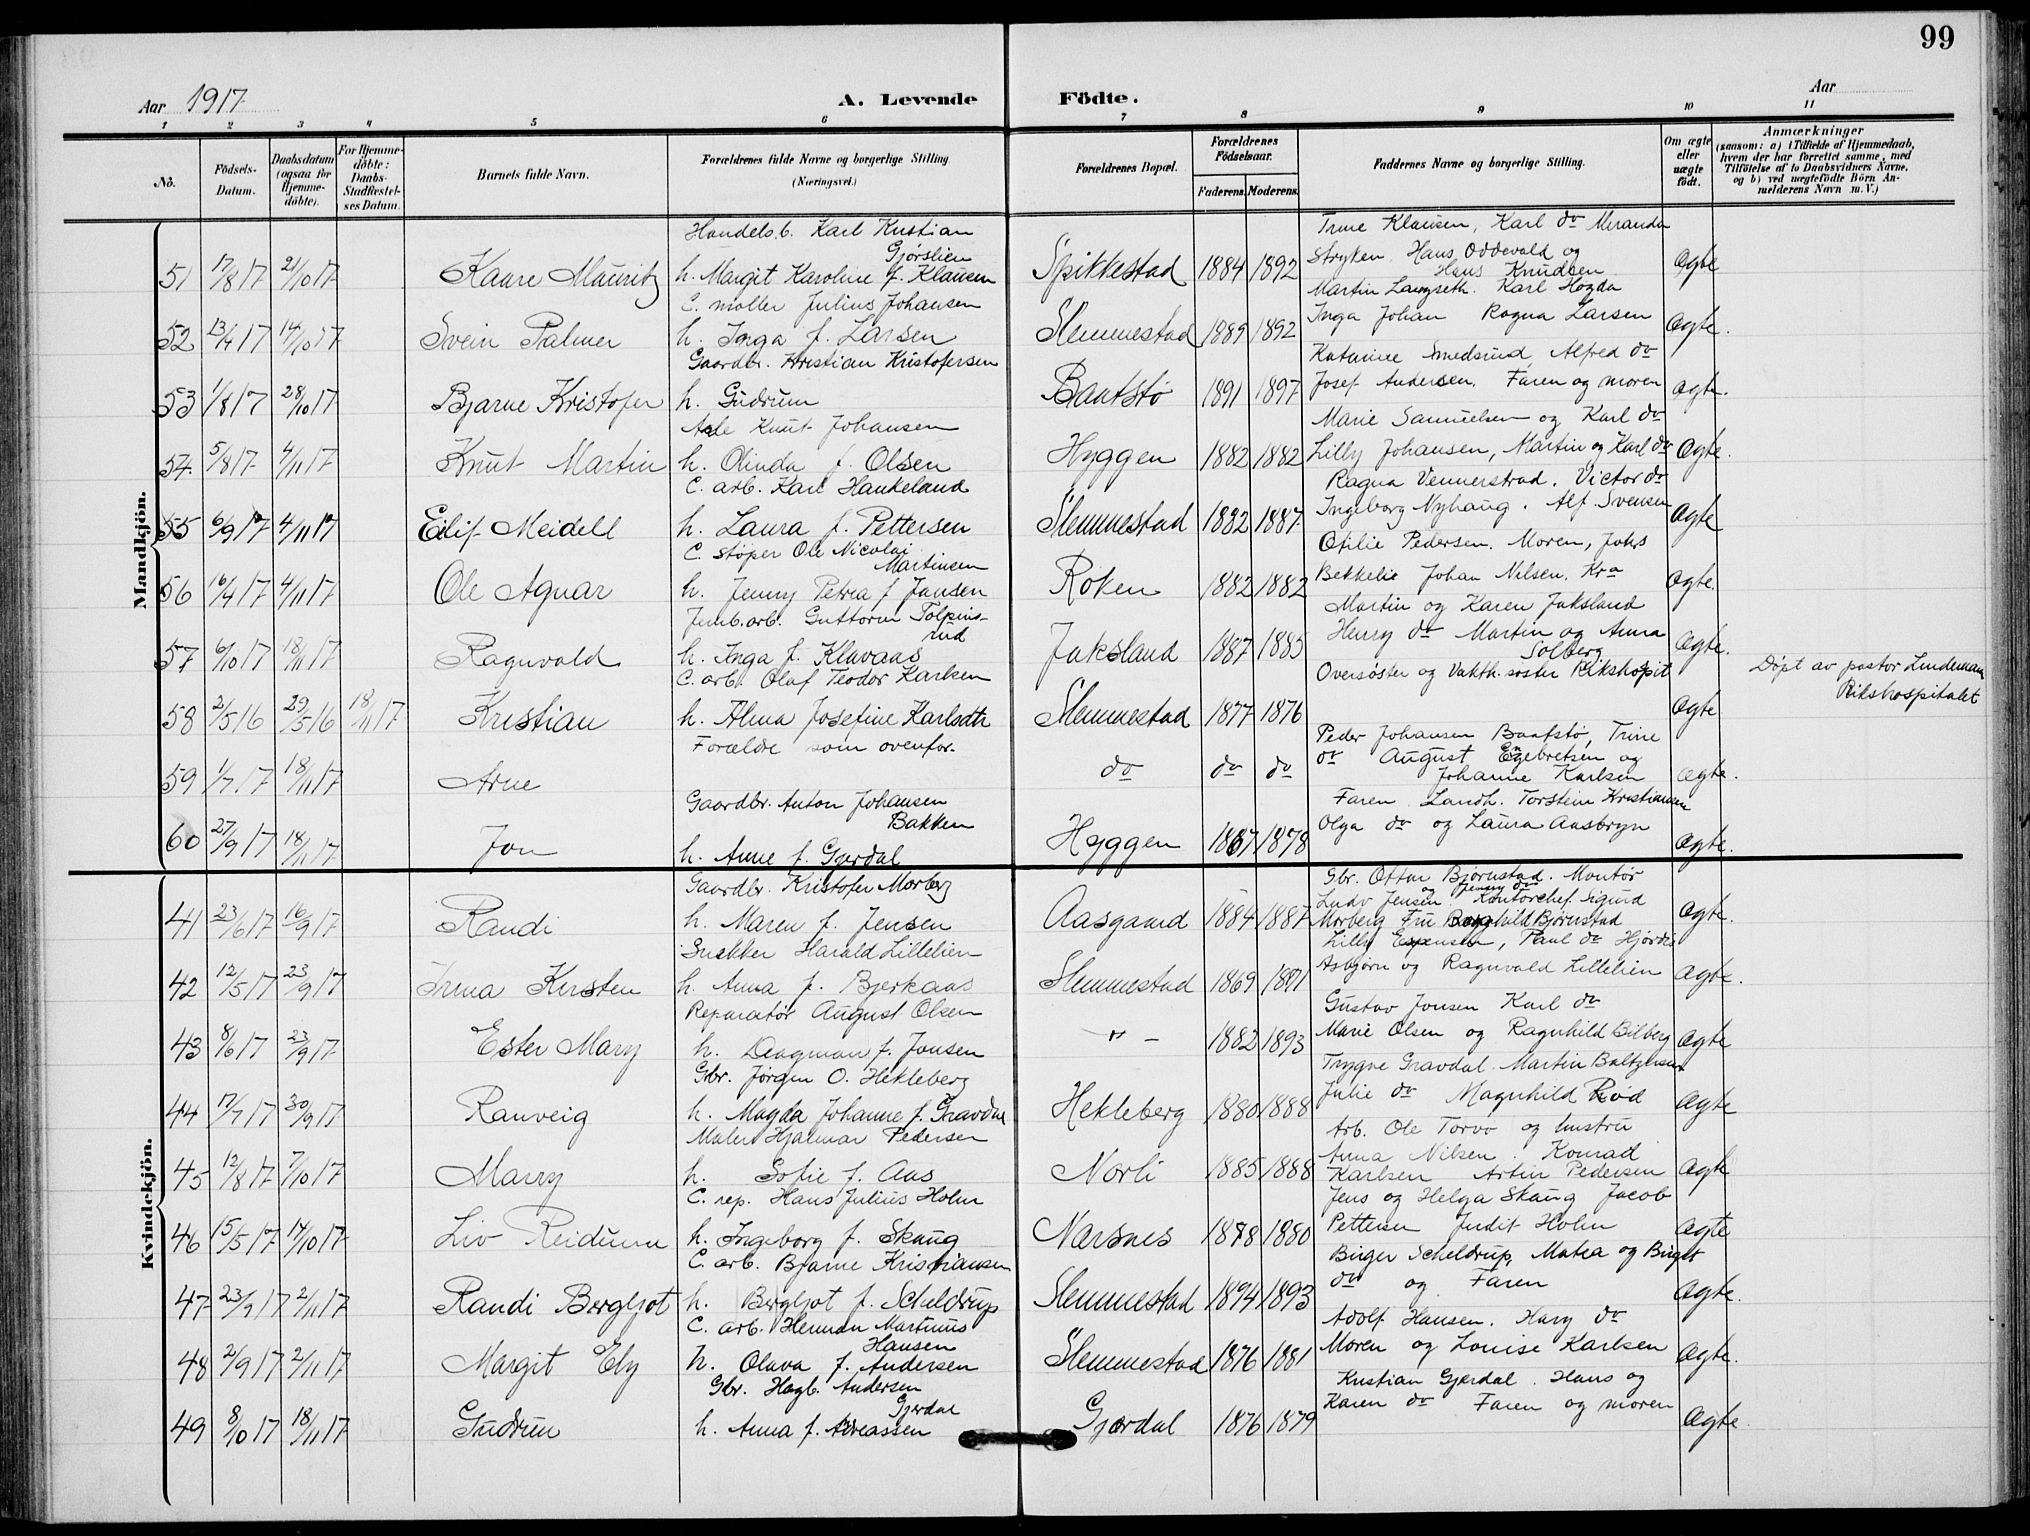 99
Aar 1917
A. Levende Födte.
Aar
1 2 3 4 5 6 7 8 9 10 11
No.
Födsels-Datum.
Daabsdatum (ogsaa for Hjemme-döbte).
For Hjemme-döbte: Daabs-Stadfæstel-ses Datum.
Barnets fulde Navn.
Forældrenes fulde Navne og borgerlige Stilling. (Næringsvei.)
Forældrenes Bopæl.
Forældrenes Födselsaar.
Faderens. Moderens.
Faddernes Navne og borgerlige Stilling.
Om ægte eller uægte født.
Anmærkninger (saasom: a) i Tilfælde af Hjemmedaab, hvem der har forrettet samme, med Tilföielse af to Daabsvidners Navne, og b) ved uægtefödte Börn An-melderens Navn m. V.)
Mandkjön.
Handels.b. Karl Kristian Gjørslien
51 17/8 17 21/10 17 Kaare Mauritz h. Margit Karoline f. Klausen Spikkestad 1884 1892 Ægte
Trine Klausen, Karl do Miranda
Stryken, Hans Oddevald og
Hans Knudsen
C. møller Julius Johansen
52 13/4 17 14/10 17 Svein Palmer h. Inga f. Larsen Slemmestad 1889 1892 Ægte.
Martin Langseth. Karl Hogda
Inga Johan Ragna Larsen
Gaardbr. Kristian Kristofersen
53 1/8 17 28/10 17 Bjarne Kristofer h. Gudrun Baatstø 1891 1897 Ægte.
Katarine Smedsrud, Alfred do
Josef Andersen. Faren og moren
Knut Johansen
54 5/8 17 4/11 17 Knut Martin h. Olinda f. Olsen Hyggen 1882 1882 Ægte.
Marie Samuelsen og Karl do
Lilly Johansen, Martin og Karl do
C. arb. Karl Haukeland
55 6/9 17 4/11 17 Eilif Meidell h. Laura f. Pettersen Slemmestad 1882 1887 Ægte
Ragna Vennerstrad. Victor do
Ingeborg Nyhaug. Alf Svensen
C. støper Ole Nicolai Martinsen
56 16/4 17 4/11 17 Ole Agnar h. Jenny Petrea f Jansen Røken 1882 1882 Ægte.
Otilie Pedersen. Moren,
Bekkelie Johan Nilsen. Kra
Jernb.arb. Guttorm Tolpinsrud
57 6/10 17 18/11 17 Ragnvald h. Inga f. Klavaas Jaksland 1887 1885 Ægte.
Martin og Karen Jaksland
Henry do Martin og Anna
Solberg
C. arb. Olaf Teodor Karlsen
58 2/5 16 29/5 16 18/11 17 Kristian h. Alma Josefine Karlsdtr Slemmestad 1877 1876 Ægte
Oversøster og Vakth. søster Rikshospit
Døpt av pastor Lindeman
Rikshospitalet
Forældre som ovenfor.
59 1/7 17 18/11 17 Arne do do do Ægte.
Peder Johansen Baatstø, Trine
do August Engebretsen og
Johanne Karlsen
Gaardbr. Anton Johansen Bakken
60 27/9 17 18/11 17 Jon h. Anne f. Gjerdal Hyggen 1867 1878 Ægte.
Faren. Landh. Torstein Kristiansen
Olga do og Laura Aasbryn
Kvindekjön.
Gaardbr. Kristofer Morberg
41 23/6 17 16/9 17 Randi h. Maren f. Jensen Aasgaard 1884 1887 Ægte.
Gbr. Ottar Bjørnstad. Montør
Ludv Jensen og Jenny do Kontorchef Sigurd
Morberg Fru Borghild Bjørnstad
Snekker Harald Lillelien
42 12/5 17 23/9 17 Irma Kirsten h. Anna f. Bjerkaas Slemmestad 1869 1871 Ægte.
Lilly Espensen, Paul do Hjørdis
Asbjørn og Ragnvald Lillelien
Reparatør August Olsen
43 8/6 17 23/9 17 Ester Mary h. Dagmar f. Jonsen " - 1882 1893 Ægte
Gustav Jonsen Karl do
Marie Olsen og Ragnhild Bilberg
Gbr. Jørgen O. Hekleberg
44 17/7 17 30/9 17 Ranveig h. Magda Johanne f. Gravdal Hekleberg 1880 1888 Ægte
Trygve Gravdal. Martin Baltzersen
Julie do Magnhild Rød
Maler Hjalmar Pedersen
45 12/8 17 7/10 17 Marry h. Sofie f. Aas Norli 1885 1888 Ægte
Arb. Ole Torvø og hustru
Anna Nilsen. Konrad
Karlsen Artur Pedersen
C. rep. Hans Julius Holm
46 15/5 17 14/10 17 Liv Reidunn h. Ingeborg f. Skaug Nærsnes 1878 1880 Ægte
Jens og Helga Skaug Jacob
Pettersen Judit Holm
C. arb. Bjarne Kristiansen
47 23/9 17 2/11 17 Randi Bergljot h. Bergljot f. Scheldrup Slemmestad 1894 1893 Ægte.
Birger Scheldrup, Matea og Birgit
do og Faren
C. arb. Herman Martinius Hansen
48 2/9 17 2/11 17 Margit Ely h. Olava f. Andersen Slemmestad 1876 1881 Ægte.
Adolf Hansen. Kary do
Moren og Louise Karlsen
Gbr. Hagb. Andersen Gjerdal
49 8/10 17 18/11 17 Gudrun h. Anna f. Andreassen Gjerdal 1876 1879 Ægte.
Kristian Gjerdal. Hans og
Karen do Faren og moren